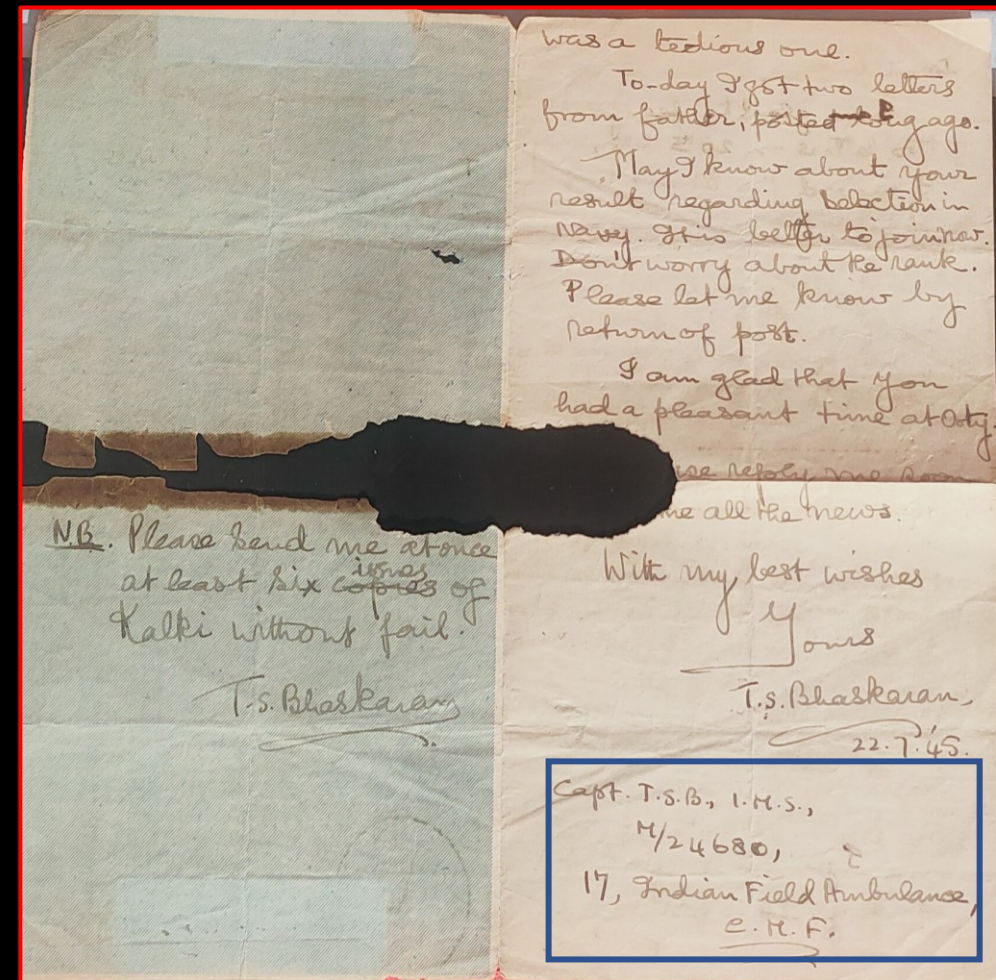 N.B. Please send me at once
issues
at least six copies of
Kalki without fail.
T.S. Bhaskaran
was a tedious one.
To-day I got two letters
from father, posted long ago.
May I know about your
result regarding selection in
navy. It is better to join now.
Don't worry about the rank.
Please let me know by
return of post.
I am glad that you
had a pleasant time at Ooty.
reply me soon
me all the news.
With my best wishes
Yours
T.S. Bhaskaran,
22.7.'45.
Capt. T.S.B., I.M.S.,
M/24680,
17, Indian Field Ambulance,
C.M.F.